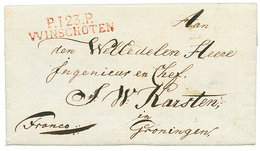 P.123.P.
WINSCHOTEN
Aan
den Welledelen Heere
Ingenieur en Chef
J W Karsten,
Franco
in
Groningen